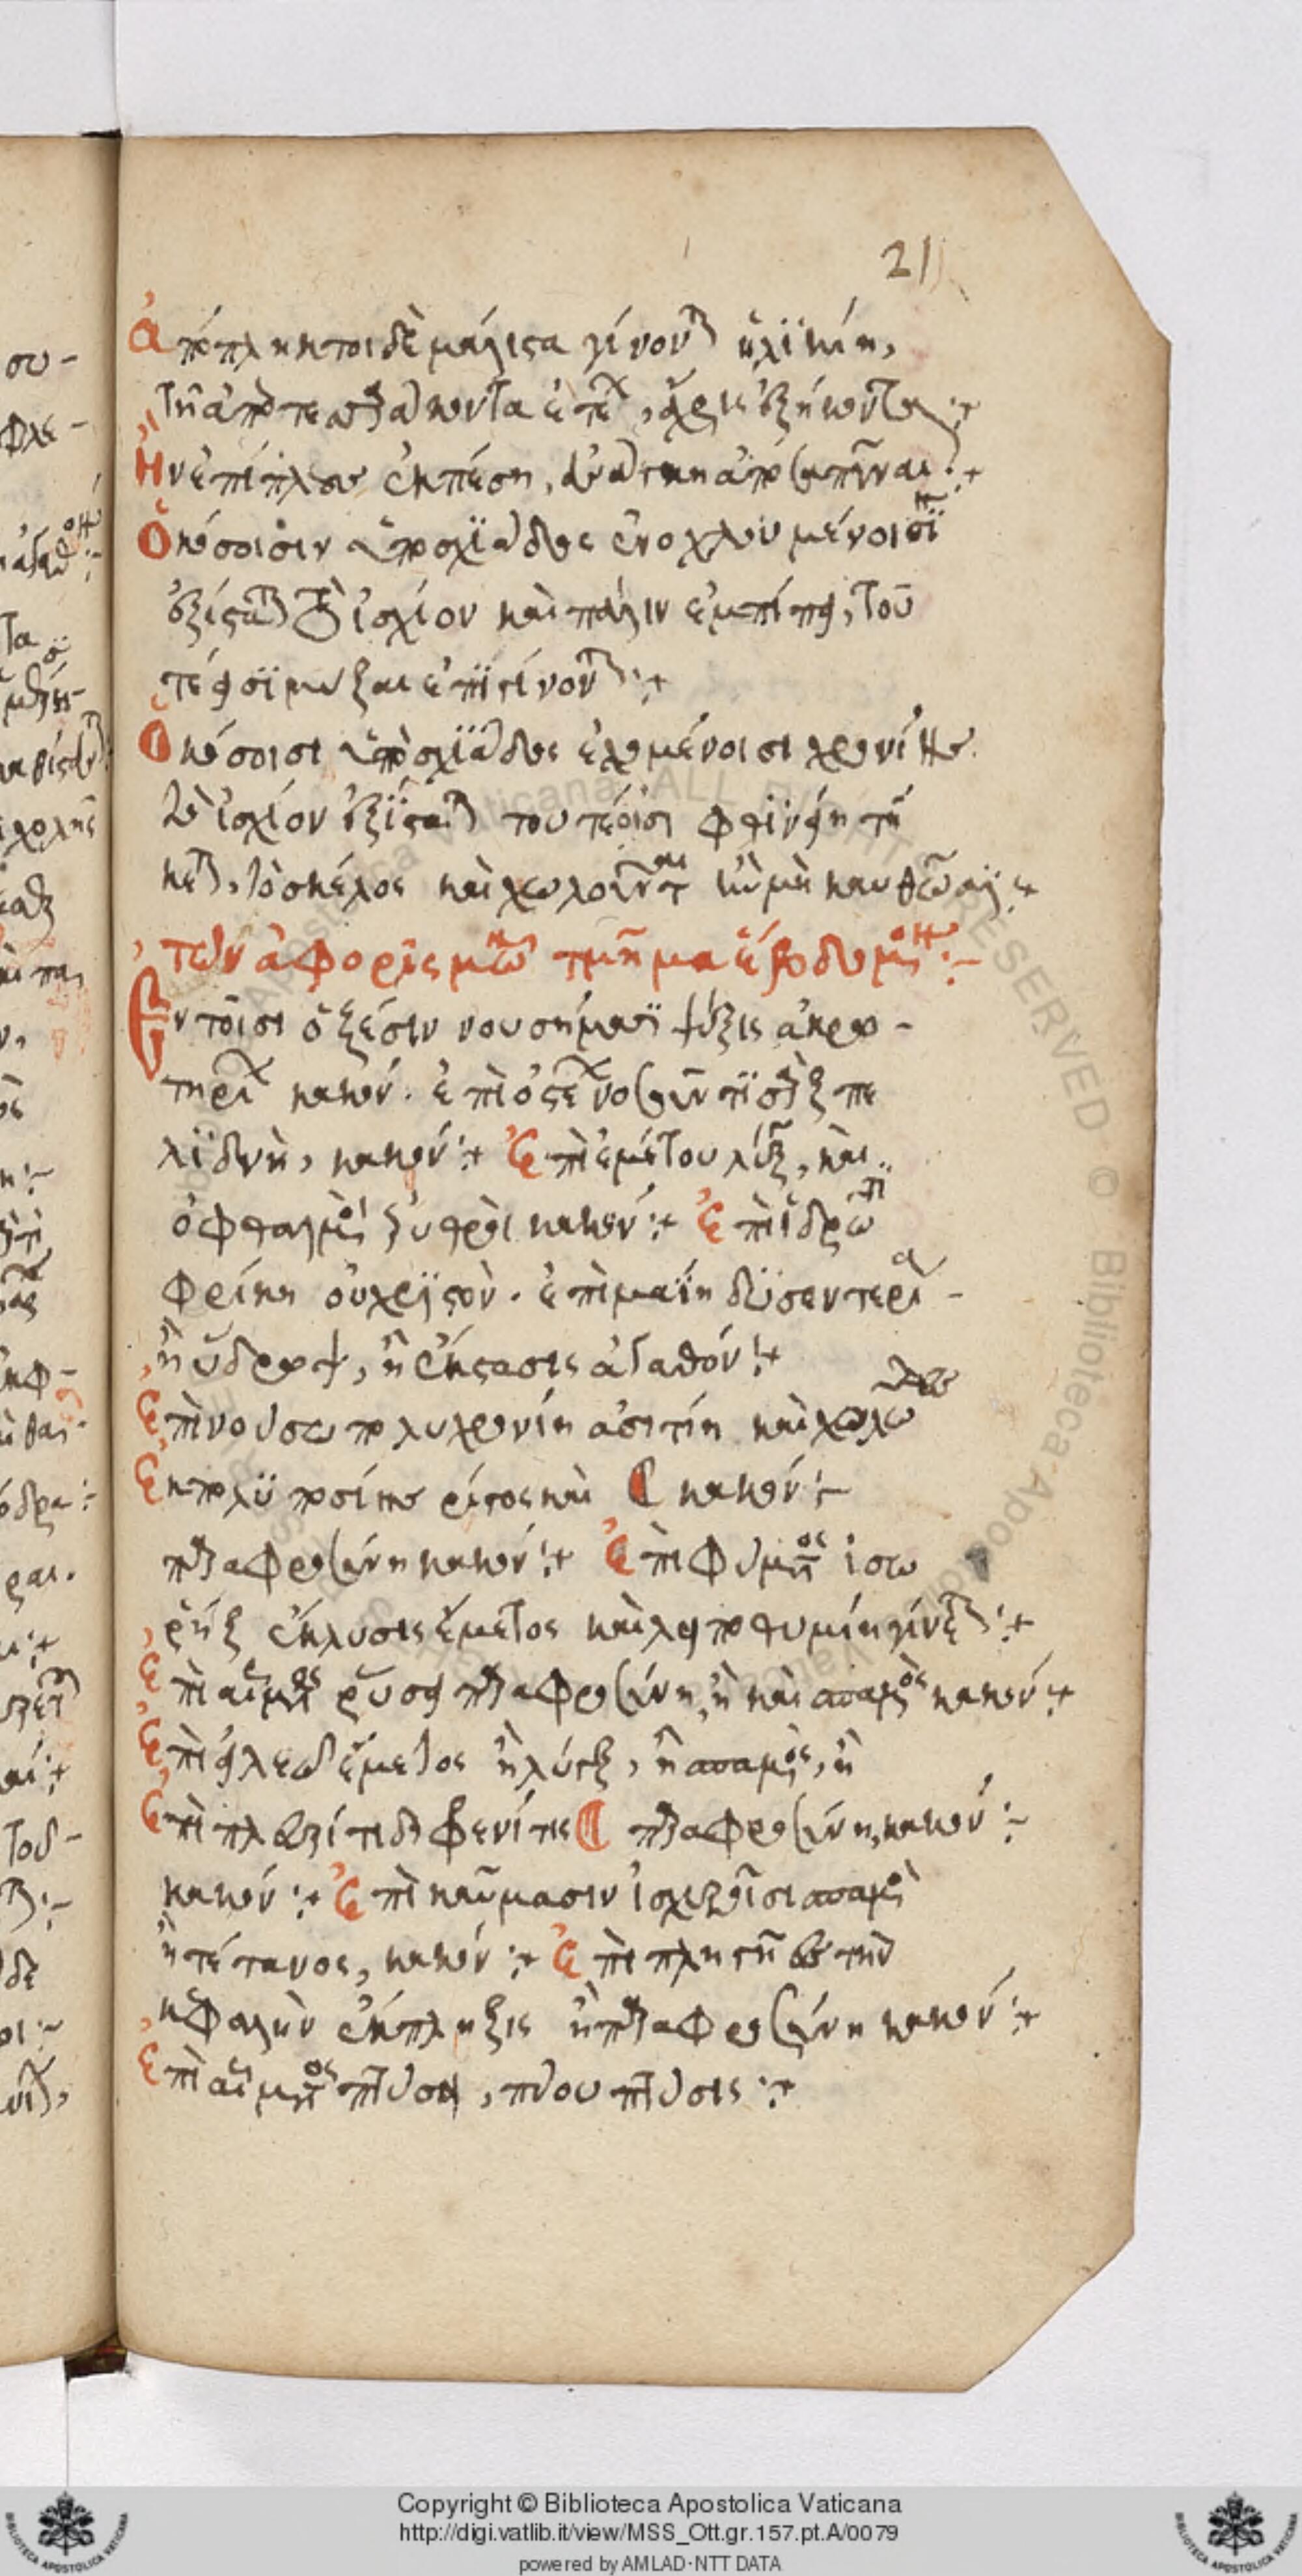 21
Ἀπόπληκτοι δὲ μάλιστα γίνονται ἡλικίη,
τῇ ἀπὸ τεσσαράκοντα ἐτέων, ἄχρις ἑξήκοντα:+
Ἢν ἐπίπλοον ἐκπέση, ἀνάγκη ἀποσαπῆναι:+
Ὁκόσοισιν ὑπὸ ἰσχιάδος ἐνοχλουμένοισιν
ἐξίσταται τὸ ἰσχίον καὶ πάλιν ἐμπίπτει, του
τέοισι μύξαι ἐπιγίνονται:+
Ὁκόσοισι ὑπὸ ἰσχιάδος ἐχομένοισι χρονίης
τὸ ἰσχίον ἐξίσταται τουτέοισι φθίνει τή
κεται, τὸ σκέλος καὶ χωλοῦνται ἢν μὴ καυθῶσι:+
τῶν ἀφορισμῶν τμῆμα ἕβδομον:-
Ἐν τοῖσι ὀξέσιν νουσήμασι ψύξις ἀκρω-
τηρίων κακόν. ἐπὶ ὀστέω νοσοῦντι σὰρξ πε
λιδνὴ, κακόν:+ Ἐπὶ ἐμέτου λύγξ, καὶ
ὀφθαλμοὶ ἐρυθροὶ κακόν:+ Ἐπὶ ἱδρῶτι
φρίκη οὐ χρηστόν. ἐπὶ μανίη δυσεντερία-
ἢ ὕδρωψ, ἢ ἔκστασις ἀγαθόν:+
Ἐπὶ νούσω πολυχρονίη ἀσιτίη καὶ
Ἐκ πολυποσίης ῥίγος καὶ κακόν:-
παραφροσύνη κακόν:+ Ἐπὶ φύματος ἴσω
ῥήξει ἔκλυσις ἔμετος καὶ λειποθυμίη γίνεται:+
Ἐπὶ αἵματος ῥύσει παραφροσύνη, ἢ καὶ σπασμὸς κακόν:+
Ἐπὶ εἰλεῶ ἔμετος ἢ λύγξ, ἢ σπασμὸς, ἢ
Ἐπὶ πλευρίτιδι φρενίτις παραφροσύνη, κακόν:-
κακόν:+ Ἐπὶ καύμασιν ἰσχυροῖσι σπασμὸς
ἢ τέτανος, κακόν:+ Ἐπὶ πληγῇ ἐς τὴν
κεφαλὴν ἔκπληξις ἢ παραφροσύνη κακόν:+
Ἐπὶ αἵματος πτύσει, πύου πτύσις:+
Copyright © Biblioteca Apostolica Vaticana
http://digi.vatlib.it/view/MSS_Ott.gr.157.pt.A/0079
powered by AMLAD·NTT DATA